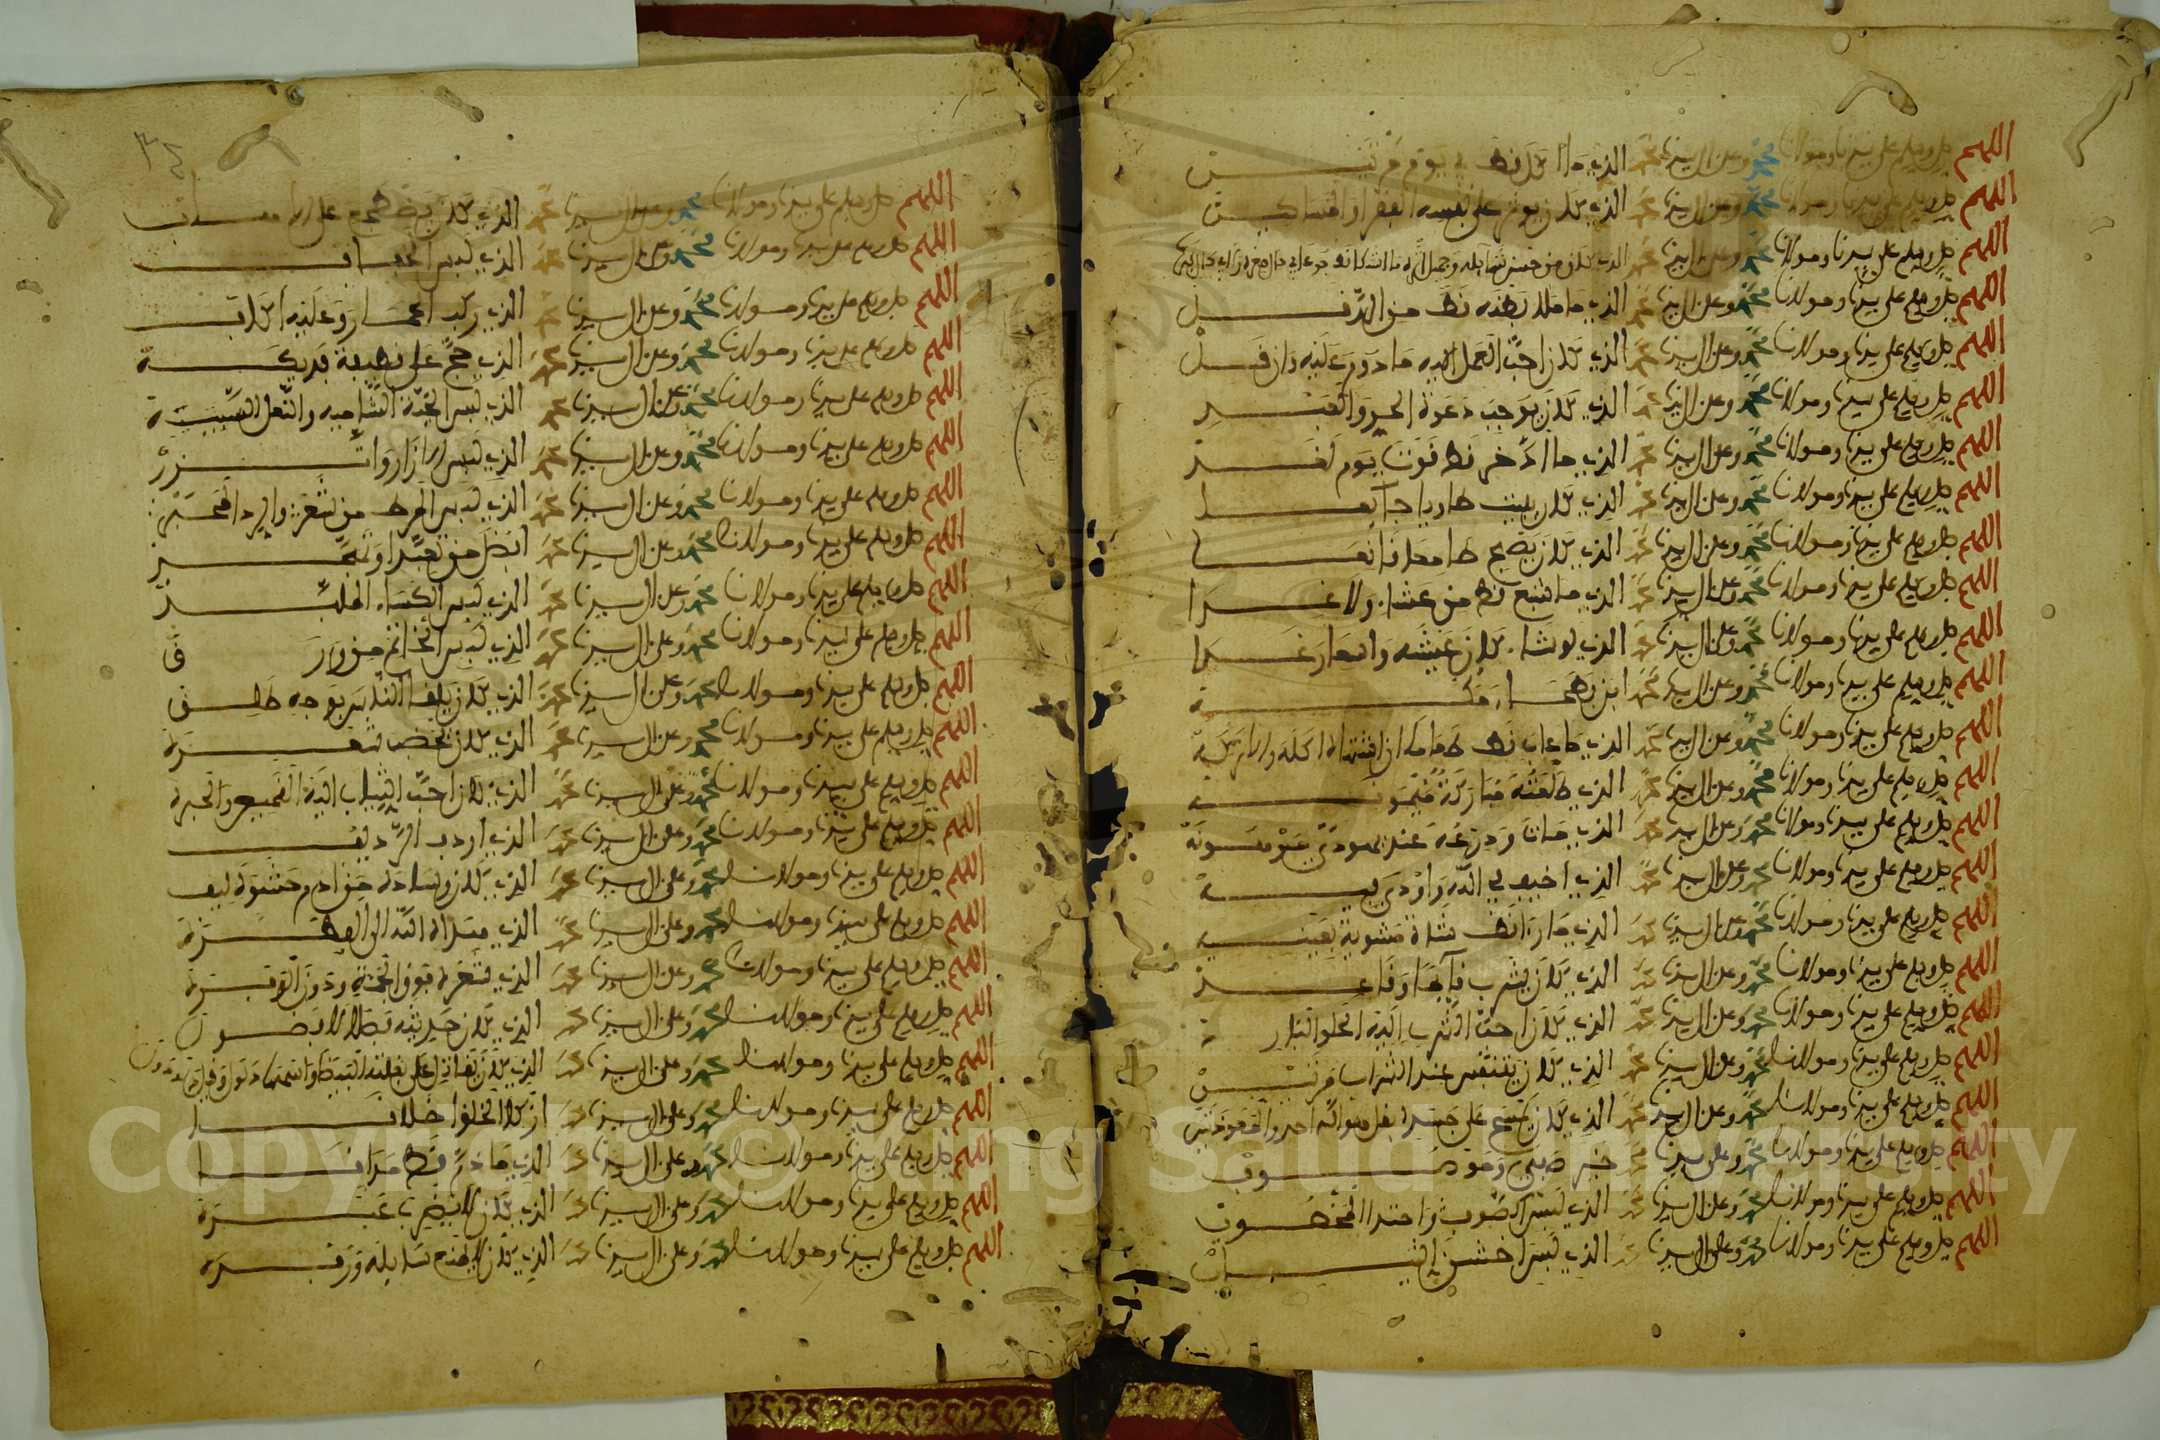 اللهم صل وسلم على سيدنا ومولانا محمد وعلى ال سيدنا محمد الذي ما اكل قط في يوم مرتين
اللهم صل وسلم على سيدنا ومولانا محمد وعلى ال سيدنا محمد الذي كان يوثر على نفسه الفقرا والمساكين
اللهم صل وسلم على سيدنا ومولانا محمد وعلى ال سيدنا محمد الذي كان من حسن شمايله وجميل
اللهم صل وسلم على سيدنا ومولانا محمد وعلى ال سيدنا محمد الذي ما ملا بطنه قط من الدقل
اللهم صل وسلم على سيدنا ومولانا محمد وعلى ال سيدنا محمد الذي كان احب العمل اليه ما دووم عليه وان قل
اللهم صل وسلم على سيدنا ومولانا محمد وعلى ال سيدنا محمد الذي كان يوجب دعوة الحر والعبد
اللهم صل وسلم على سيدنا ومولانا محمد وعلى ال سيدنا محمد الذي ما ادخر قط قوت يوم لغد
اللهم صل وسلم على سيدنا ومولانا محمد وعلى ال سيدنا محمد الذي كان يبيت طاويا جايعا
اللهم صل وسلم على سيدنا ومولانا محمد وعلى ال سيدنا محمد الذي كان يصبح طامعا قانعا
اللهم صل وسلم على سيدنا ومولانا محمد وعلى ال سيدنا محمد الذي ما شبع قط من عشاء ولا غدا
اللهم صل وسلم على سيدنا ومولانا محمد وعلى ال سيدنا محمد الذي لو شاء كان عيشه واسعا رغدا
اللهم صل وسلم على سيدنا ومولانا محمد وعلى ال سيدنا محمد ابن بطحاء مكة
اللهم صل وسلم على سيدنا ومولانا محمد وعلى ال سيدنا محمد الذي ما عاب قط طعاما ان اشتهاه اكله والا تركه
اللهم صل وسلم على سيدنا ومولانا محمد وعلى ال سيدنا محمد الذي طلعته مباركة ميمونه
اللهم صل وسلم على سيدنا ومولانا محمد وعلى ال سيدنا محمد الذي مات ودرعه عند يهودي مرهونة
اللهم صل وسلم على سيدنا ومولانا محمد وعلى ال سيدنا محمد الذي اخيف في الله واوذي
اللهم صل وسلم على سيدنا ومولانا محمد وعلى ال سيدنا محمد الذي ما راى قط شاة مشوية بعينه
اللهم صل وسلم على سيدنا ومولانا محمد وعلى ال سيدنا محمد الذي كان يشرب قايما وقاعدا
اللهم صل وسلم على سيدنا ومولانا محمد وعلى ال سيدنا محمد الذي كان احب الشرب اليه الحلو البارد
اللهم صل وسلم على سيدنا ومولانا محمد وعلى ال سيدنا محمد الذي كان يتنفس عند الشراب مرتين
اللهم صل وسلم على سيدنا ومولانا محمد وعلى ال سيدنا محمد الذي كان يمسح على جسده بقل هو الله احد والمعوذتين
اللهم صل وسلم على سيدنا ومولانا محمد وعلى ال سيدنا محمد خير صبي
اللهم صل وسلم على سيدنا ومولانا محمد وعلى ال سيدنا محمد الذي لبس الصوف واحتذا المخصوف
اللهم صل وسلم على سيدنا ومولانا محمد وعلى ال سيدنا محمد الذي لبس اخشن الثياب
٣٤
اللهم صل وسلم على سيدنا ومولانا محمد وعلى ال سيدنا محمد الذي كان يضطجع على
اللهم صل وسلم على سيدنا ومولانا محمد وعلى ال سيدنا محمد الذي لبس الخفاف
اللهم صل وسلم على سيدنا ومولانا محمد وعلى ال سيدنا محمد الذي ركب الحمار وعليه اكاف
اللهم صل وسلم على سيدنا ومولانا محمد وعلى ال سيدنا محمد الذي حج على قطيفة فدكية
اللهم صل وسلم على سيدنا ومولانا محمد وعلى ال سيدنا محمد الذي لبس الجبة الشامية والنعل السبتية
اللهم صل وسلم على سيدنا ومولانا محمد وعلى ال سيدنا محمد الذي لبس الازار واتزر
اللهم صل وسلم على سيدنا ومولانا محمد وعلى ال سيدنا محمد الذي لبس المرط من شعر والبرد المحبر
اللهم صل وسلم على سيدنا ومولانا محمد وعلى ال سيدنا محمد افضل من تعبد وتهجد
اللهم صل وسلم على سيدنا ومولانا محمد وعلى ال سيدنا محمد الذي لبس الكساء الملبد
اللهم صل وسلم على سيدنا ومولانا محمد وعلى ال سيدنا محمد الذي لبس الخاتم من ورق
اللهم صل وسلم على سيدنا ومولانا محمد وعلى ال سيدنا محمد الذي كان يلقا الناس بوجه طلق
اللهم صل وسلم على سيدنا ومولانا محمد وعلى ال سيدنا محمد الذي كان يخضب شعره
اللهم صل وسلم على سيدنا ومولانا محمد وعلى ال سيدنا محمد الذي كان احب الثياب اليه القميص والحبرة
اللهم صل وسلم على سيدنا ومولانا محمد وعلى ال سيدنا محمد الذي اردف الرديف
اللهم صل وسلم على سيدنا ومولانا محمد وعلى ال سيدنا محمد الذي كان وسادة من ادم حشوه ليف
اللهم صل وسلم على سيدنا ومولانا محمد وعلى ال سيدنا محمد الذي هداه الله الى الفطرة
اللهم صل وسلم على سيدنا ومولانا محمد وعلى ال سيدنا محمد الذي شعره فوق الجمة ودون الوفرة
اللهم صل وسلم على سيدنا ومولانا محمد وعلى ال سيدنا محمد الذي كان حديثه فصلا لا فضول
اللهم صل وسلم على سيدنا ومولانا محمد وعلى ال سيدنا محمد الذي كان يقاتل على بغلته البيضا واسمها دلدل
اللهم صل وسلم على سيدنا ومولانا محمد وعلى ال سيدنا محمد ازكا الخلق اخلاقا
اللهم صل وسلم على سيدنا ومولانا محمد وعلى ال سيدنا محمد الذي ما ذم قط مذاقا
اللهم صل وسلم على سيدنا ومولانا محمد وعلى ال سيدنا محمد الذي كان لا يضرب عبده
اللهم صل وسلم على سيدنا ومولانا محمد وعلى ال سيدنا محمد الذي كان لا يمنع سايله ورفده
Copyright © King Saud University